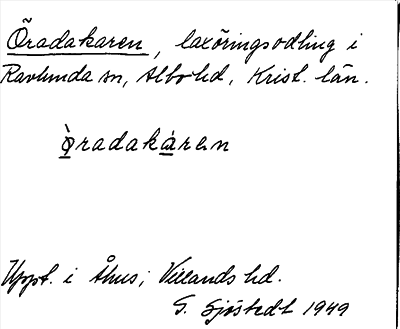 Öradakaren, laxöringsodling i
Ravlunda sn, Albo hd, Krist. län.
ò̱radaká̱ren
Uppt. i Åhus; Villands hd.
G. Sjöstedt 1949